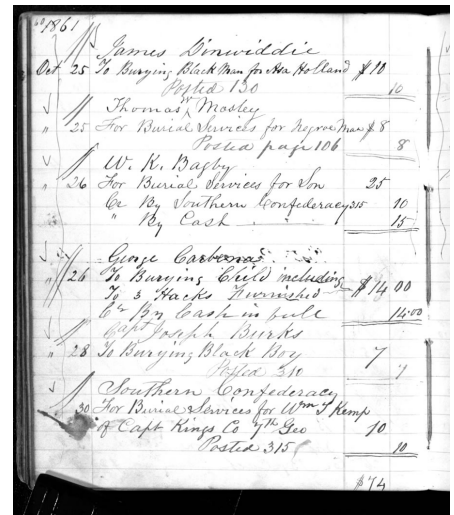 60 1861
James Dinwiddie
Oct 25 To Burying Black Man for Asa Holland $10
Posted 130 10
Thomas W Mosley
" 25 For Burial Services for Negroe Man $8
Posted page 106 8
W. K. Bagby
" 26 For Burial Services for Son 25
Cr By Southern Confederacy 315 10
" By Cash 15
George
" 26 To Burying Child including
To 3 Hacks Furnished $14 00
Cr By Cash in full 14.00
Capt Joseph Burks
" 28 To Burying Black Boy 7
Posted 310 7
Southern Confederacy
30 For Burial Services for Wm T Kemp
of Capt Kings Co 7th Geo 10
Posted 315 10
$74